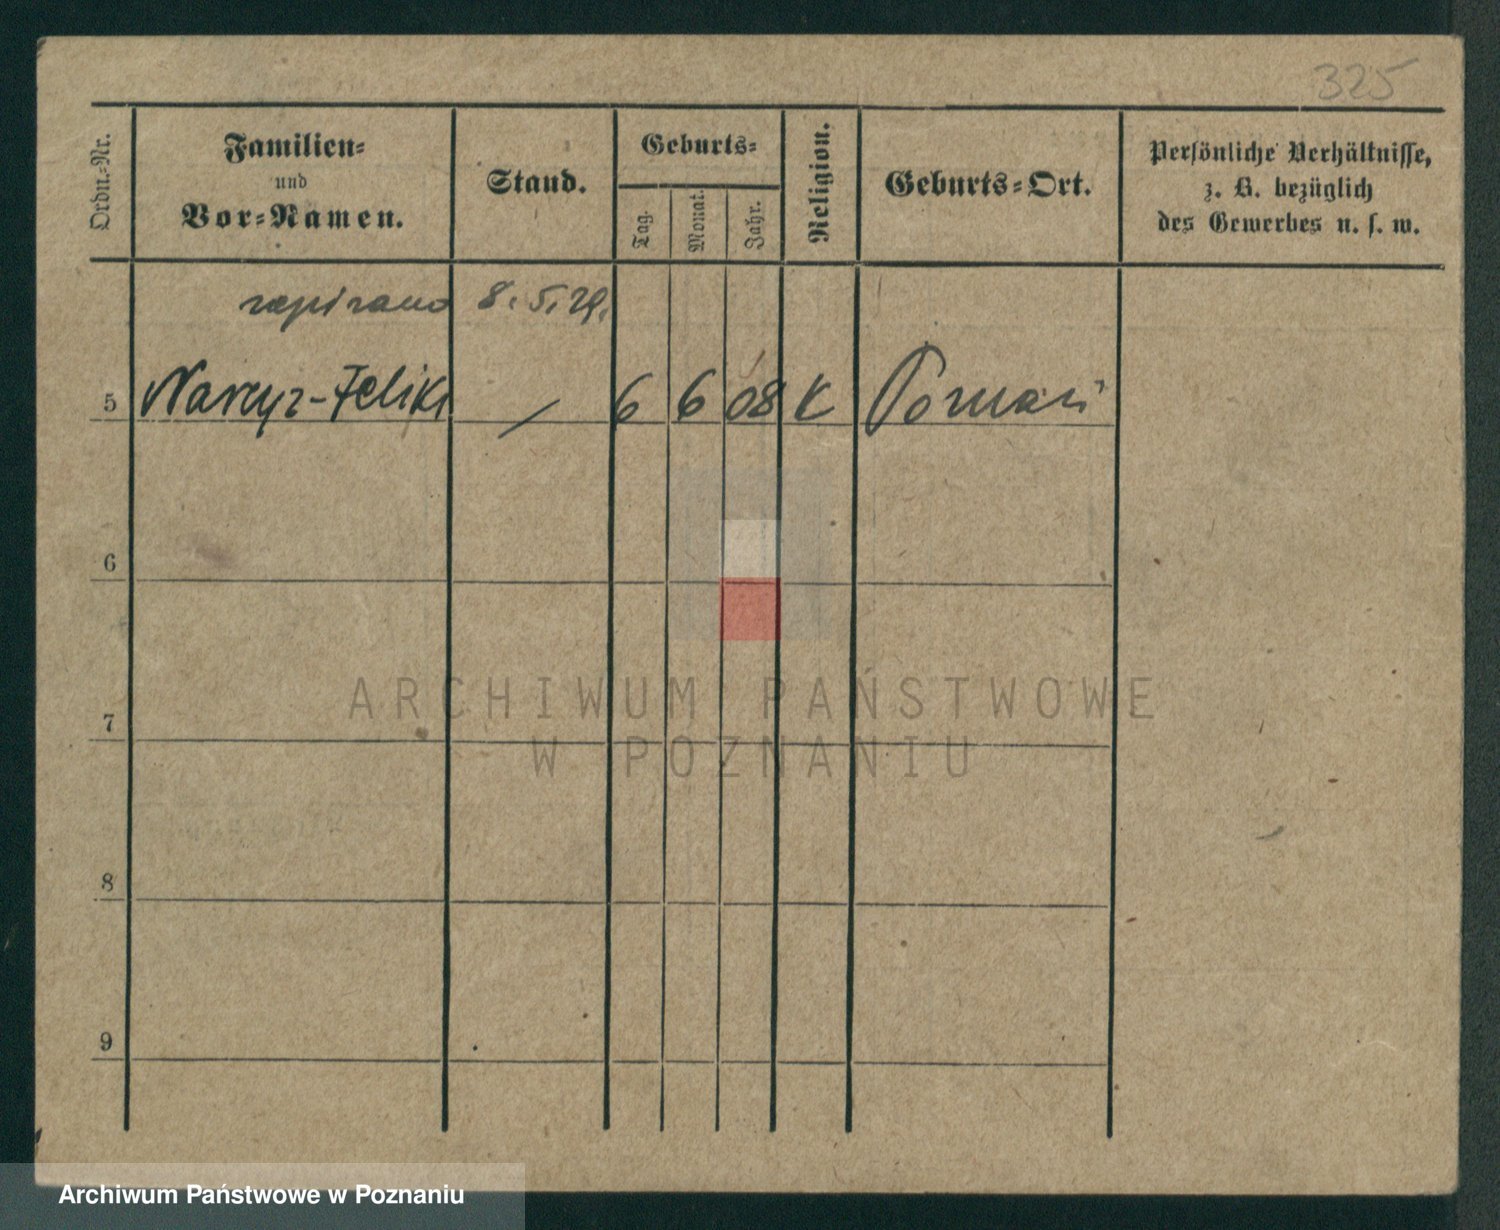 325
Ordn.-Nr.
Familien-
und
Vor-Namen.
Stand.
Geburts-
Tag.
Monat.
Jahr.
Religion.
Geburts-Ort.
Persönliche Verhältnisse,
z. B. bezüglich
des Gewerbes u. s. w.
zapisano 8. 5. 29.
5 Narcyz-Feliks / 6 6 08 K Poznań
6
7
8
9
ARCHIWUM PAŃSTWOWE
W POZNANIU
Archiwum Państwowe w Poznaniu